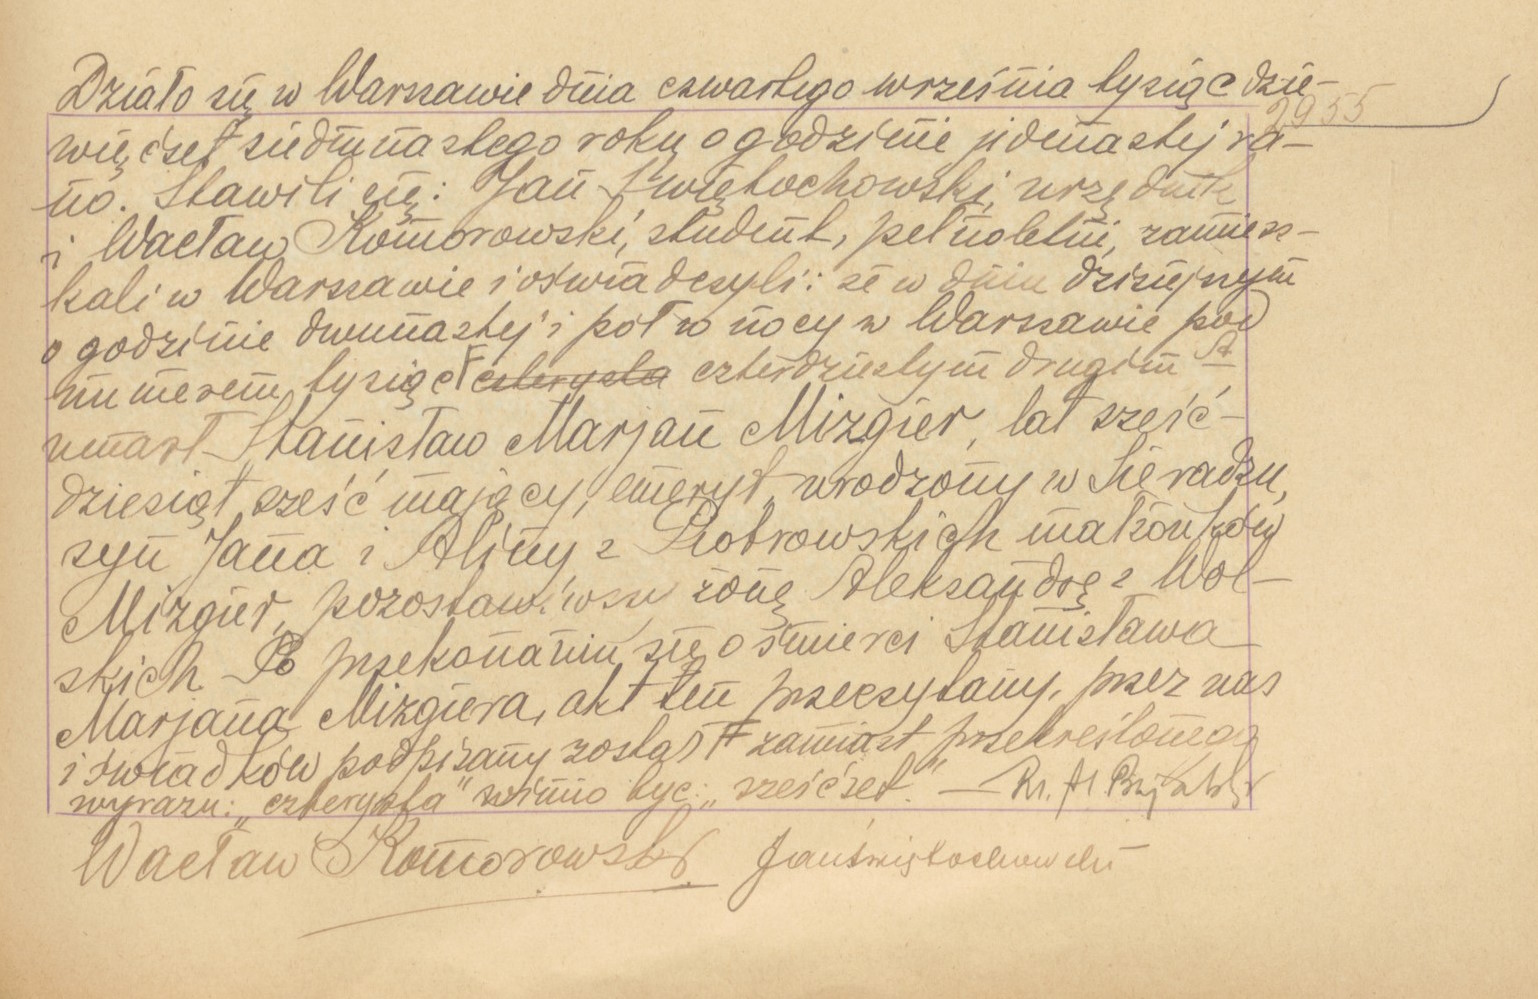 Działo się w Warszawie dnia czwartego września tysiąc dzie-
2955
więćset siedmnastego roku o godzinie jedenastej ra-
no. Stawili się: Jan Świętochowski, urzędnik
i Wacław Komorowski, student, pełnoletni, zamiesz-
kali w Warszawie i oświadczyli: że w dniu dzisiejszym
o godzinie dwunastej i pół w nocy w Warszawie pod
numerem tysiąc F czterysta czterdziestym drugim A
umarł Stanisław Marjan Mizgier, lat sześć-
dziesiąt sześć mający, emeryt, urodzony w Sieradzu,
syn Jana i Aliny z Piotrowskich małżonków
Mizgier, pozostawiwszy żonę Aleksandrę z Wol-
skich. Po przekonaniu się o śmierci Stanisława
Marjana Mizgiera, akt ten przeczytany, przez nas
i świadków podpisany został F zamiast przekreślonego
wyrazu: „czterysta" winno być: „sześćset." —
Wacław Komorowski Jan Świętochowski